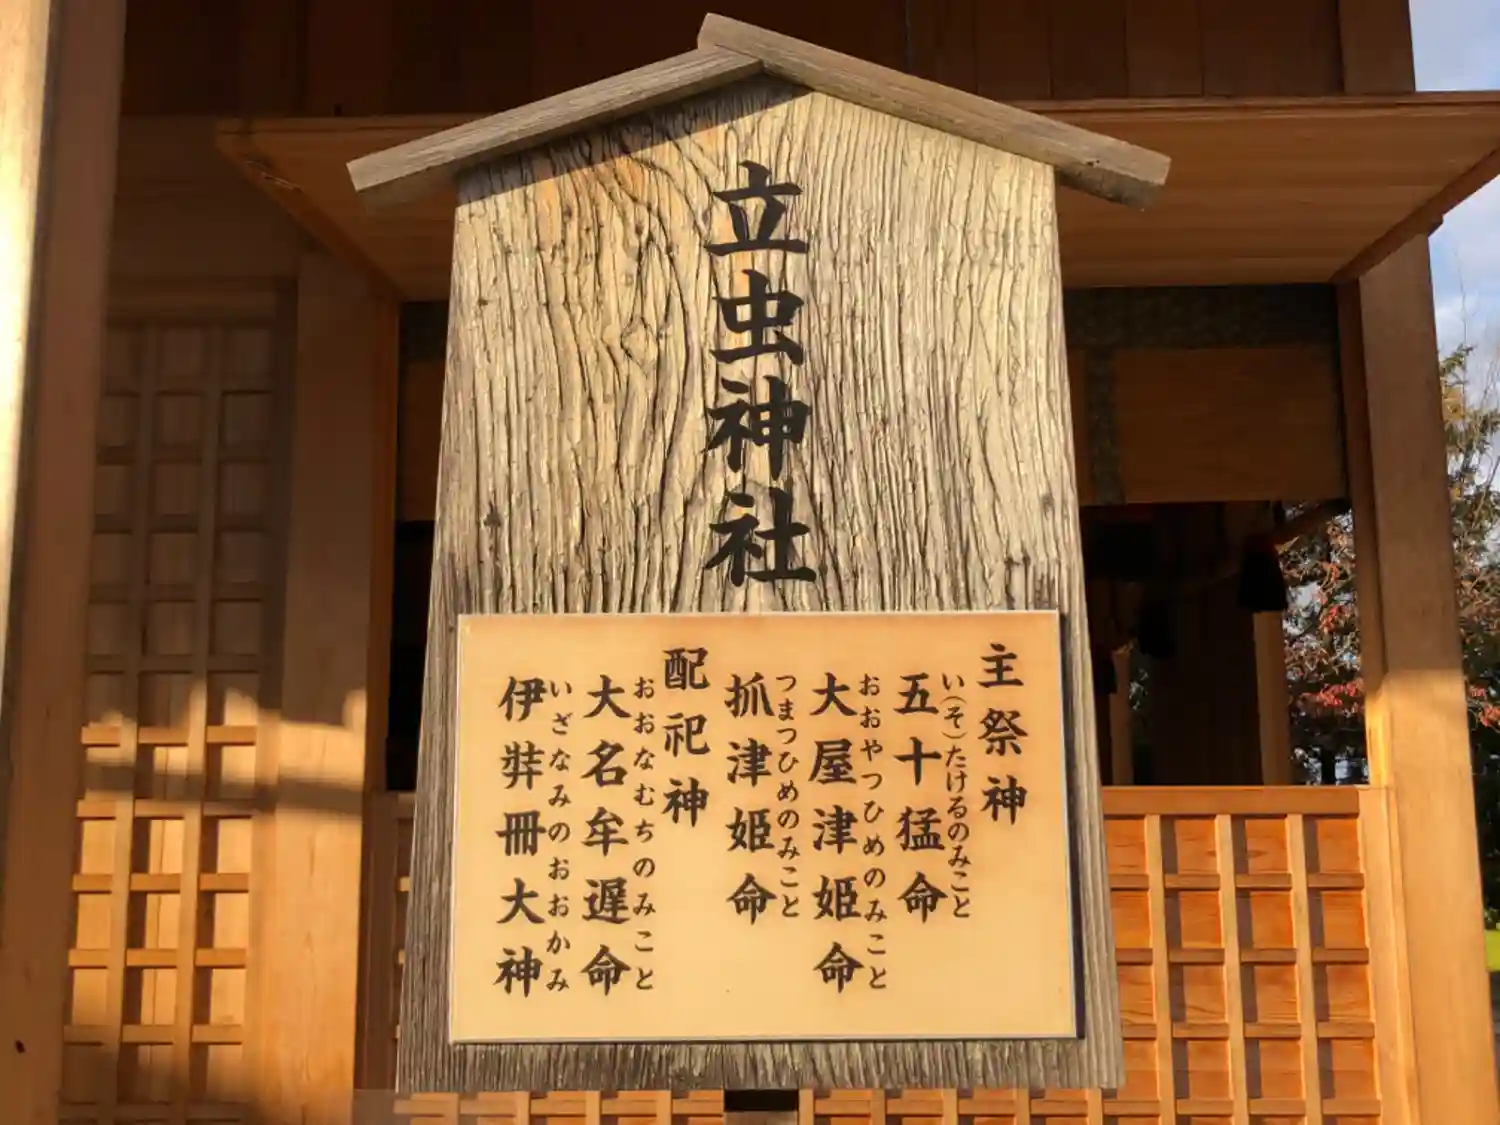 立虫神社
主祭神
い(そ)たけるのみこと
五十猛命
おおやつひめのみこと
大屋津姫命
つまつひめのみこと
抓津姫命
配祀神
おおなむちのみこと
大名牟遅命
いざなみのおおかみ
伊弉冊大神